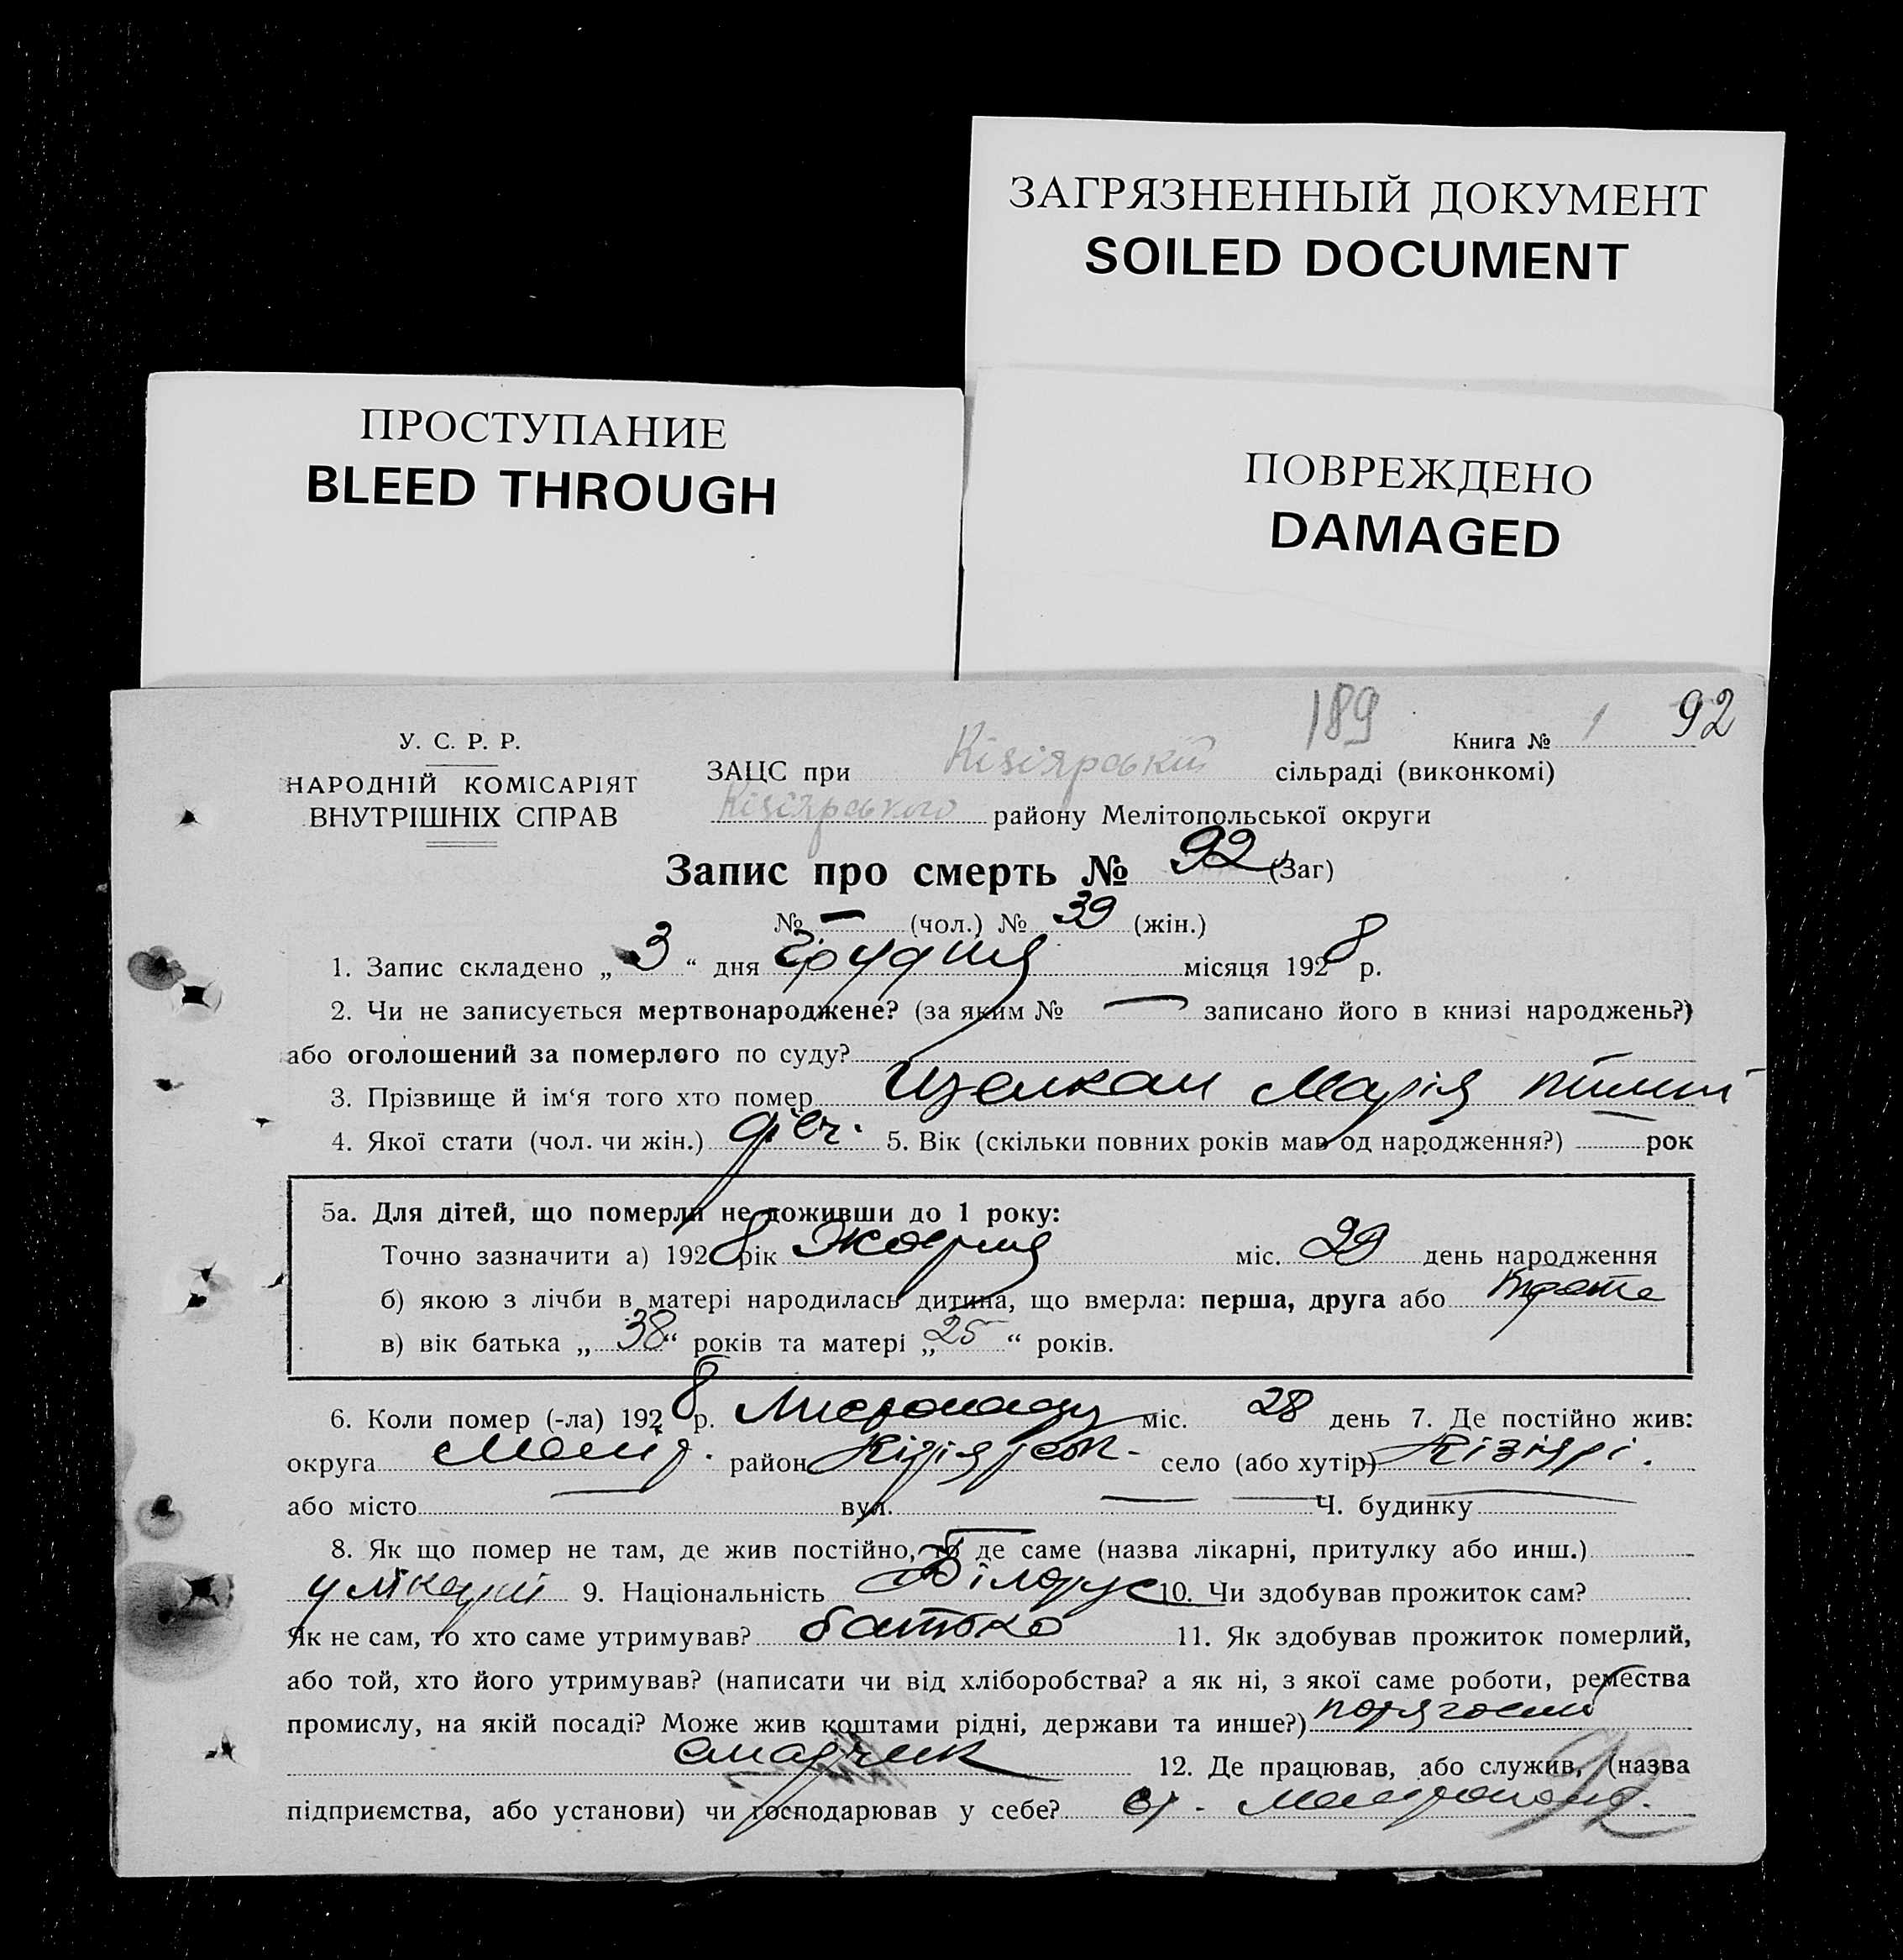 ЗАГРЯЗНЕННЫЙ ДОКУМЕНТ
SOILED DOCUMENT
ПРОСТУПАНИЕ
BLEED THROUGH
ПОВРЕЖДЕНО
DAMAGED
189
92
У. С. Р. Р.
НАРОДНІЙ КОМІСАРІЯТ
ВНУТРІШНІХ СПРАВ
Книга № 1
ЗАЦС при Кізіярській сільраді (виконкомі)
Кізіярського району Мелітопольської округи
Запис про смерть № 92 (Заг)
№ — (чол.) № 39 (жін.)
1. Запис складено „ 3 “ дня Грудня місяця 1928 р.
2. Чи не записується мертвонароджене? (за яким № — записано його в книзі народжень?)
або оголошений за померлого по суду?
3. Прізвище й ім‘я того хто помер Марія
4. Якої стати (чол. чи жін.) дівч. 5. Вік (скільки повних років мав од народження?) — рок
5а. Для дітей, що померли не доживши до 1 року:
Точно зазначити а) 1928 рік Жовтня міс. 29 день народження
б) якою з лічби в матері народилась дитина, що вмерла: перша, друга або
в) вік батька „ 38 “ років та матері „ 25 “ років.
6. Коли помер (-ла) 1928 р. Листопаду міс. 28 день 7. Де постійно жив:
округа Меліт. район Кізіярськ. село (або хутір) Кізіярі.
або місто — вул. — Ч. будинку —
8. Як що помер не там, де жив постійно, то де саме (назва лікарні, притулку або инш.)
9. Національність Білорус 10. Чи здобував прожиток сам?
Як не сам, то хто саме утримував? батько 11. Як здобував прожиток померлий,
або той, хто його утримував? (написати чи від хліборобства? а як ні, з якої саме роботи, ремества
промислу, на якій посаді? Може жив коштами рідні, держави та инше?) потягоский
смазчик 12. Де працював, або служив, (назва
підприємства, або установи) чи господарював у себе? ст. Мелітополь.
92